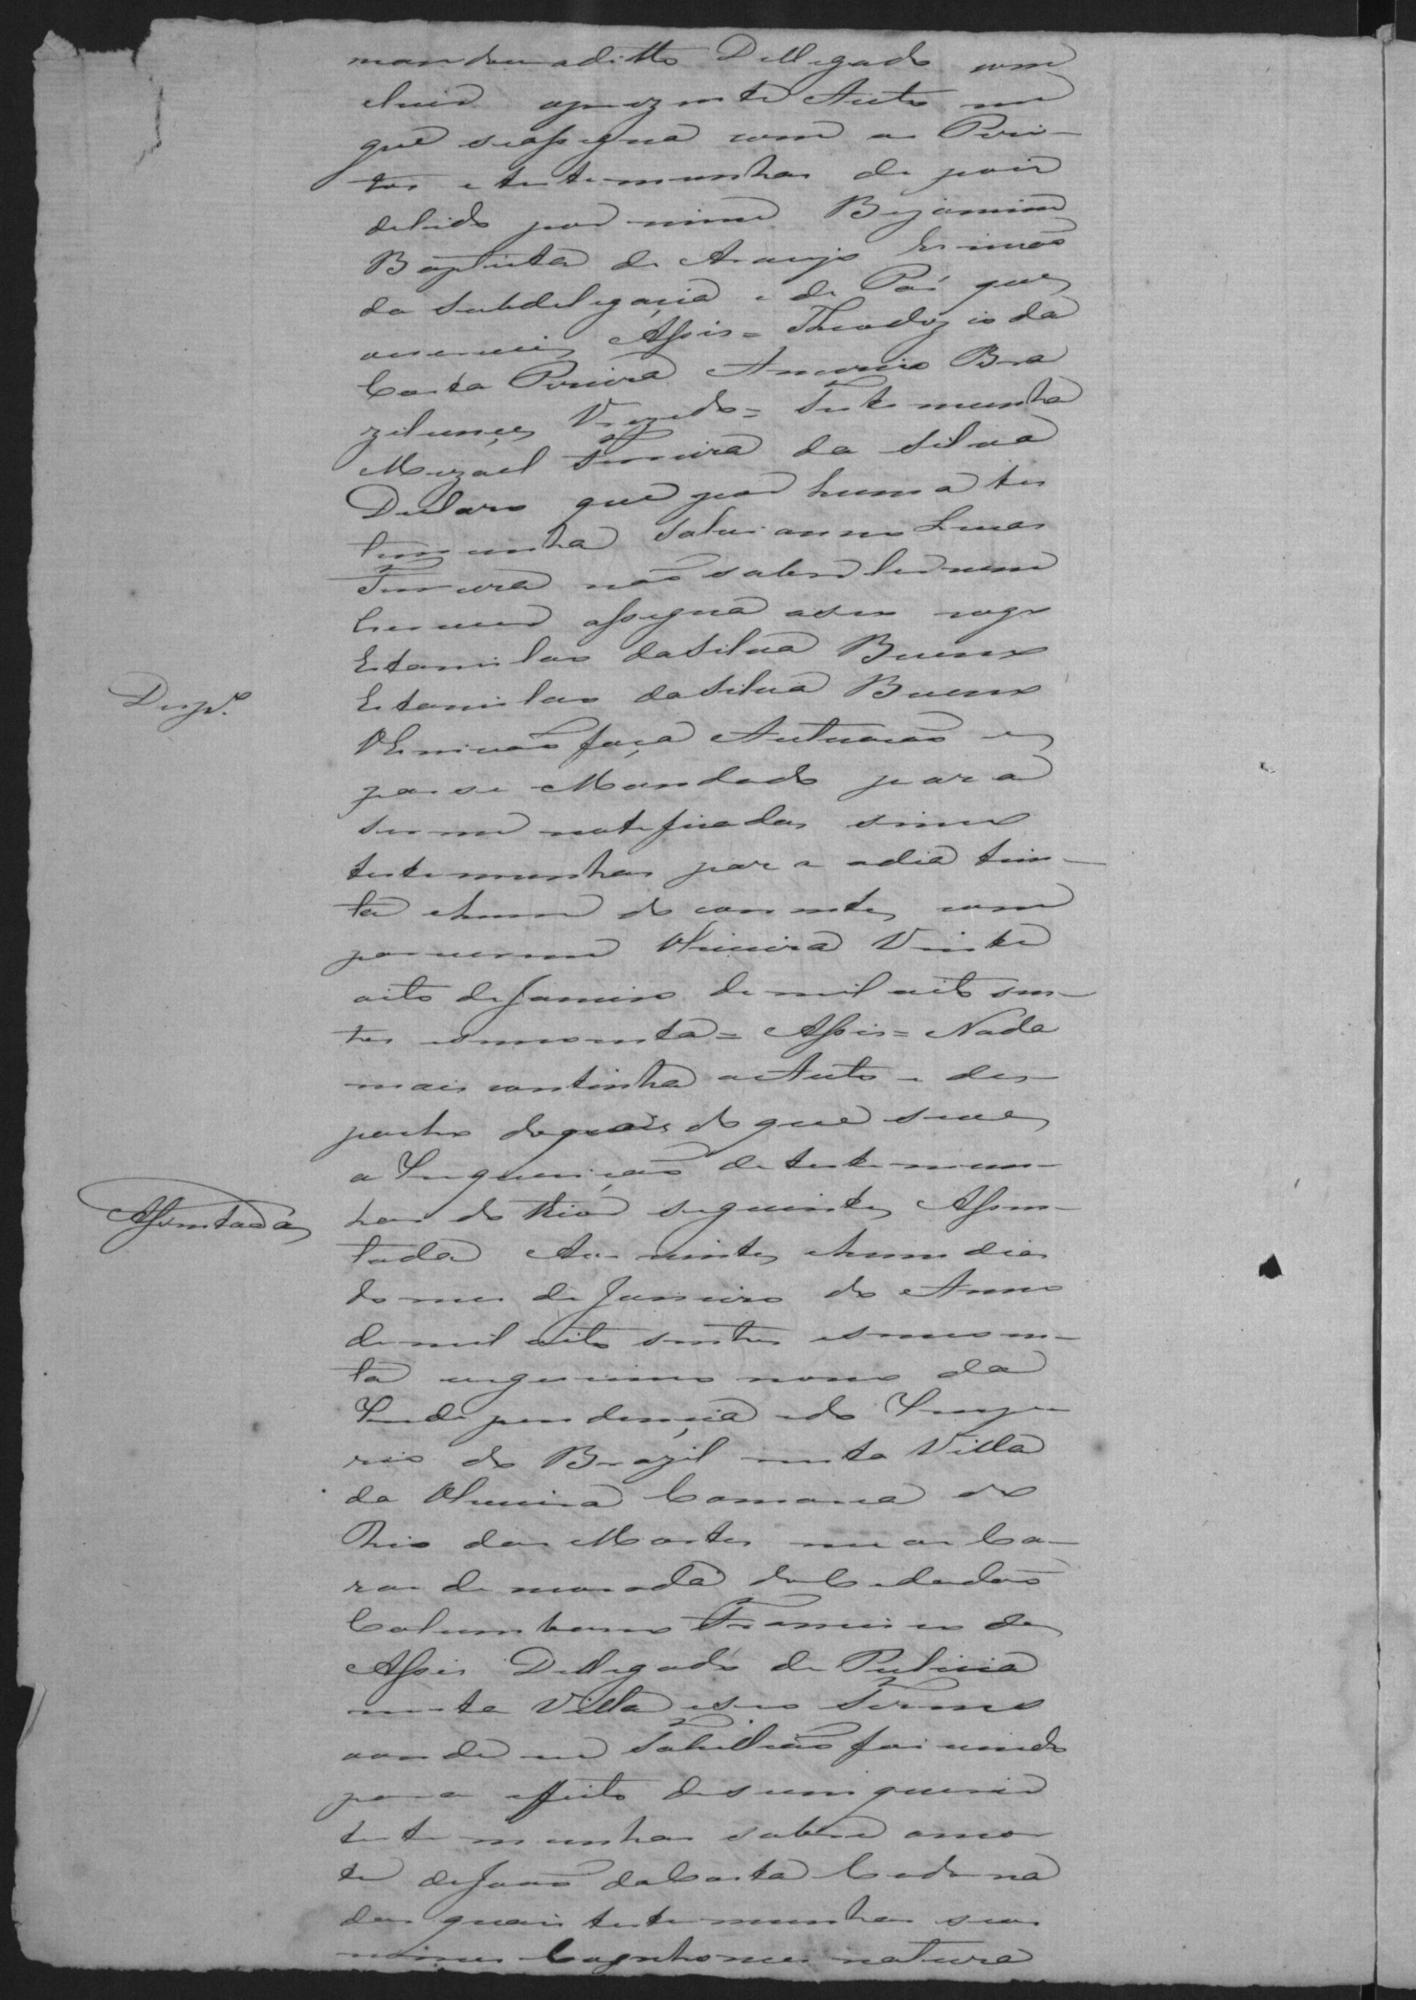 mandou aditto Dellegado com
cluir oprezente Auto em
que seassigna com os Peri-
tos e testemunhas de pois
delido por mim Bejamim
Baptista de Araujo Escrivão
da Subdelegacia e de Paz que
escrevi Assis = Theodozio da
Costa Pereira Americo Bra
zilience = Testemunha
Mizael Ferreira da Silva
Declaro que por huma tes
temunha Salvianno Lucas
Ferreira não saber ler nem
escrever assigna aseu rogo
Estanislao daSilva Bueno
Estanislao daSilva Bueno
Desp.º
OEscrivão faça Autuacão e
passe Mandado para
serem notificadas sinco
testemunhas para odia trin-
ta ehum do corrente, com
parecerem Oliveira Vinte
oito deJaneiro de mil oito sen-
tos esincoenta = Assis = Nada
mais continha oAuto e des-
pacho depois do que segue
a Inquirição de testemun-
has do theor seguinte, Assen-
Assentada
tada Aos trinta, ehum dias
do mes de Janeiro do Anno
demil oito sentos esincoen-
ta vigesimo nono da
Independencia edo Impe
rio do Brazil nesta Villa
da Oliveira Comarca do
Rio das Mortes em as Ca-
zas de morada do Cidadão
Columbano Francisco de
Assis Dellegado de Policia
nesta Villa eseu Termo
aonde eu Tabellião fui vindo
para effeito deserem inquiridas
testemunhas sobre amor
te deJoão daCosta
das quais testemunhas seus
nomes Cognhomes natura